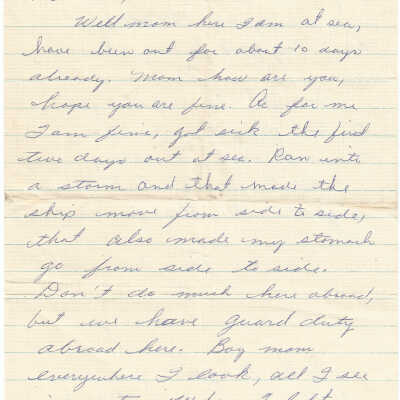 Well mom here I am at sea,
have been out for about 10 days
already. Mom how are you,
hope you are fine. As for me
I am fine, got sick the first
two days out at sea. Ran into
a storm and that made the
ship move from side to side,
that also made my stomach
go from side to side.
Don't do much here aboard,
but we have guard duty
aboard here. Boy mom
everywhere I look, all I see